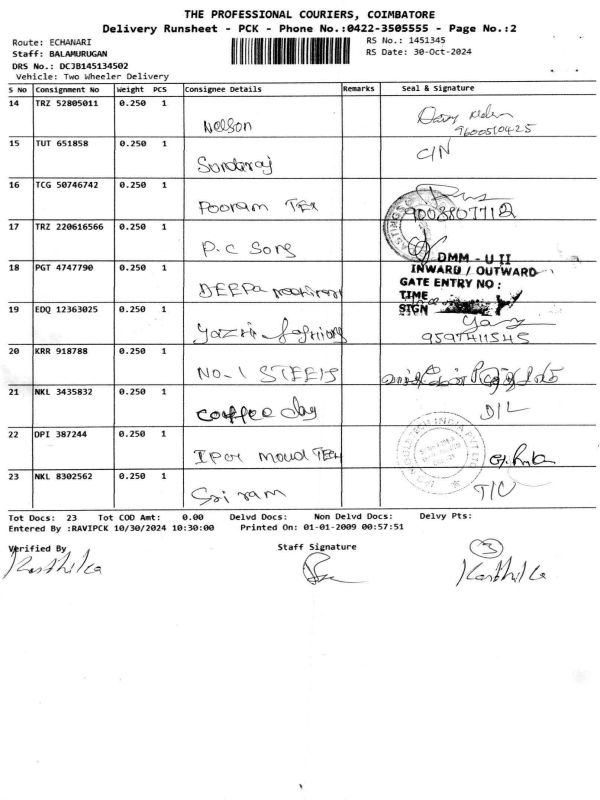 THE PROFESSIONAL COURIERS, COIMBATORE
Delivery Runsheet - PCK - Phone No.:0422-3505555 - Page No.:2
Route: ECHANARI
RS No.: 1451345
Staff: BALAMURUGAN
RS Date: 30-Oct-2024
DRS No.: DCJB145134502
Vehicle: Two Wheeler Delivery
S No Consignment No Weight PCS Consignee Details Remarks Seal & Signature
14 TRZ 52805011 0.250 1 Nelson
9600510425
15 TUT 651858 0.250 1 C/N
16 TCG 50746742 0.250 1 Pooram Tex
17 TRZ 220616566 0.250 1 P.C Sons
DMM - U II
INWARD / OUTWARD
GATE ENTRY NO :
TIME
SIGN
18 PGT 4747790 0.250 1 DEEPA
19 EDQ 12363025 0.250 1
9597411545
20 KRR 918788 0.250 1 NO-1 STEELS
21 NKL 3435832 0.250 1 coffee day D/L
22 DPI 387244 0.250 1
23 NKL 8302562 0.250 1 Sri ram T/C
Tot Docs: 23 Tot COD Amt: 0.00 Delvd Docs: Non Delvd Docs: Delvy Pts:
Entered By :RAVIPCK 10/30/2024 10:30:00 Printed On: 01-01-2009 00:57:51
Verified By
Staff Signature
3
Karthika
Karthika